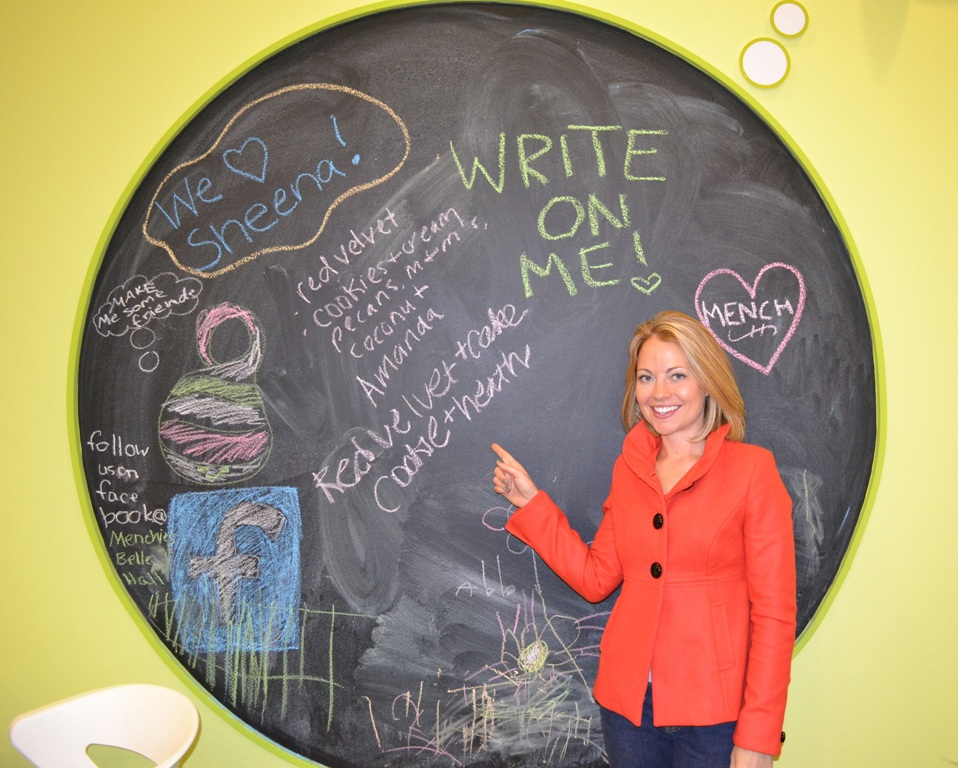 We ♡
Sheena!
WRITE
ON
ME!
MAKE
Me some
friends
red velvet
cookies + cream
pecans, m+m's,
coconut
Amanda
Red velvet + cake
Cookie + heath
MENCH
follow
us on
face
book@
Menchie
Belle
Hall
f
Abb